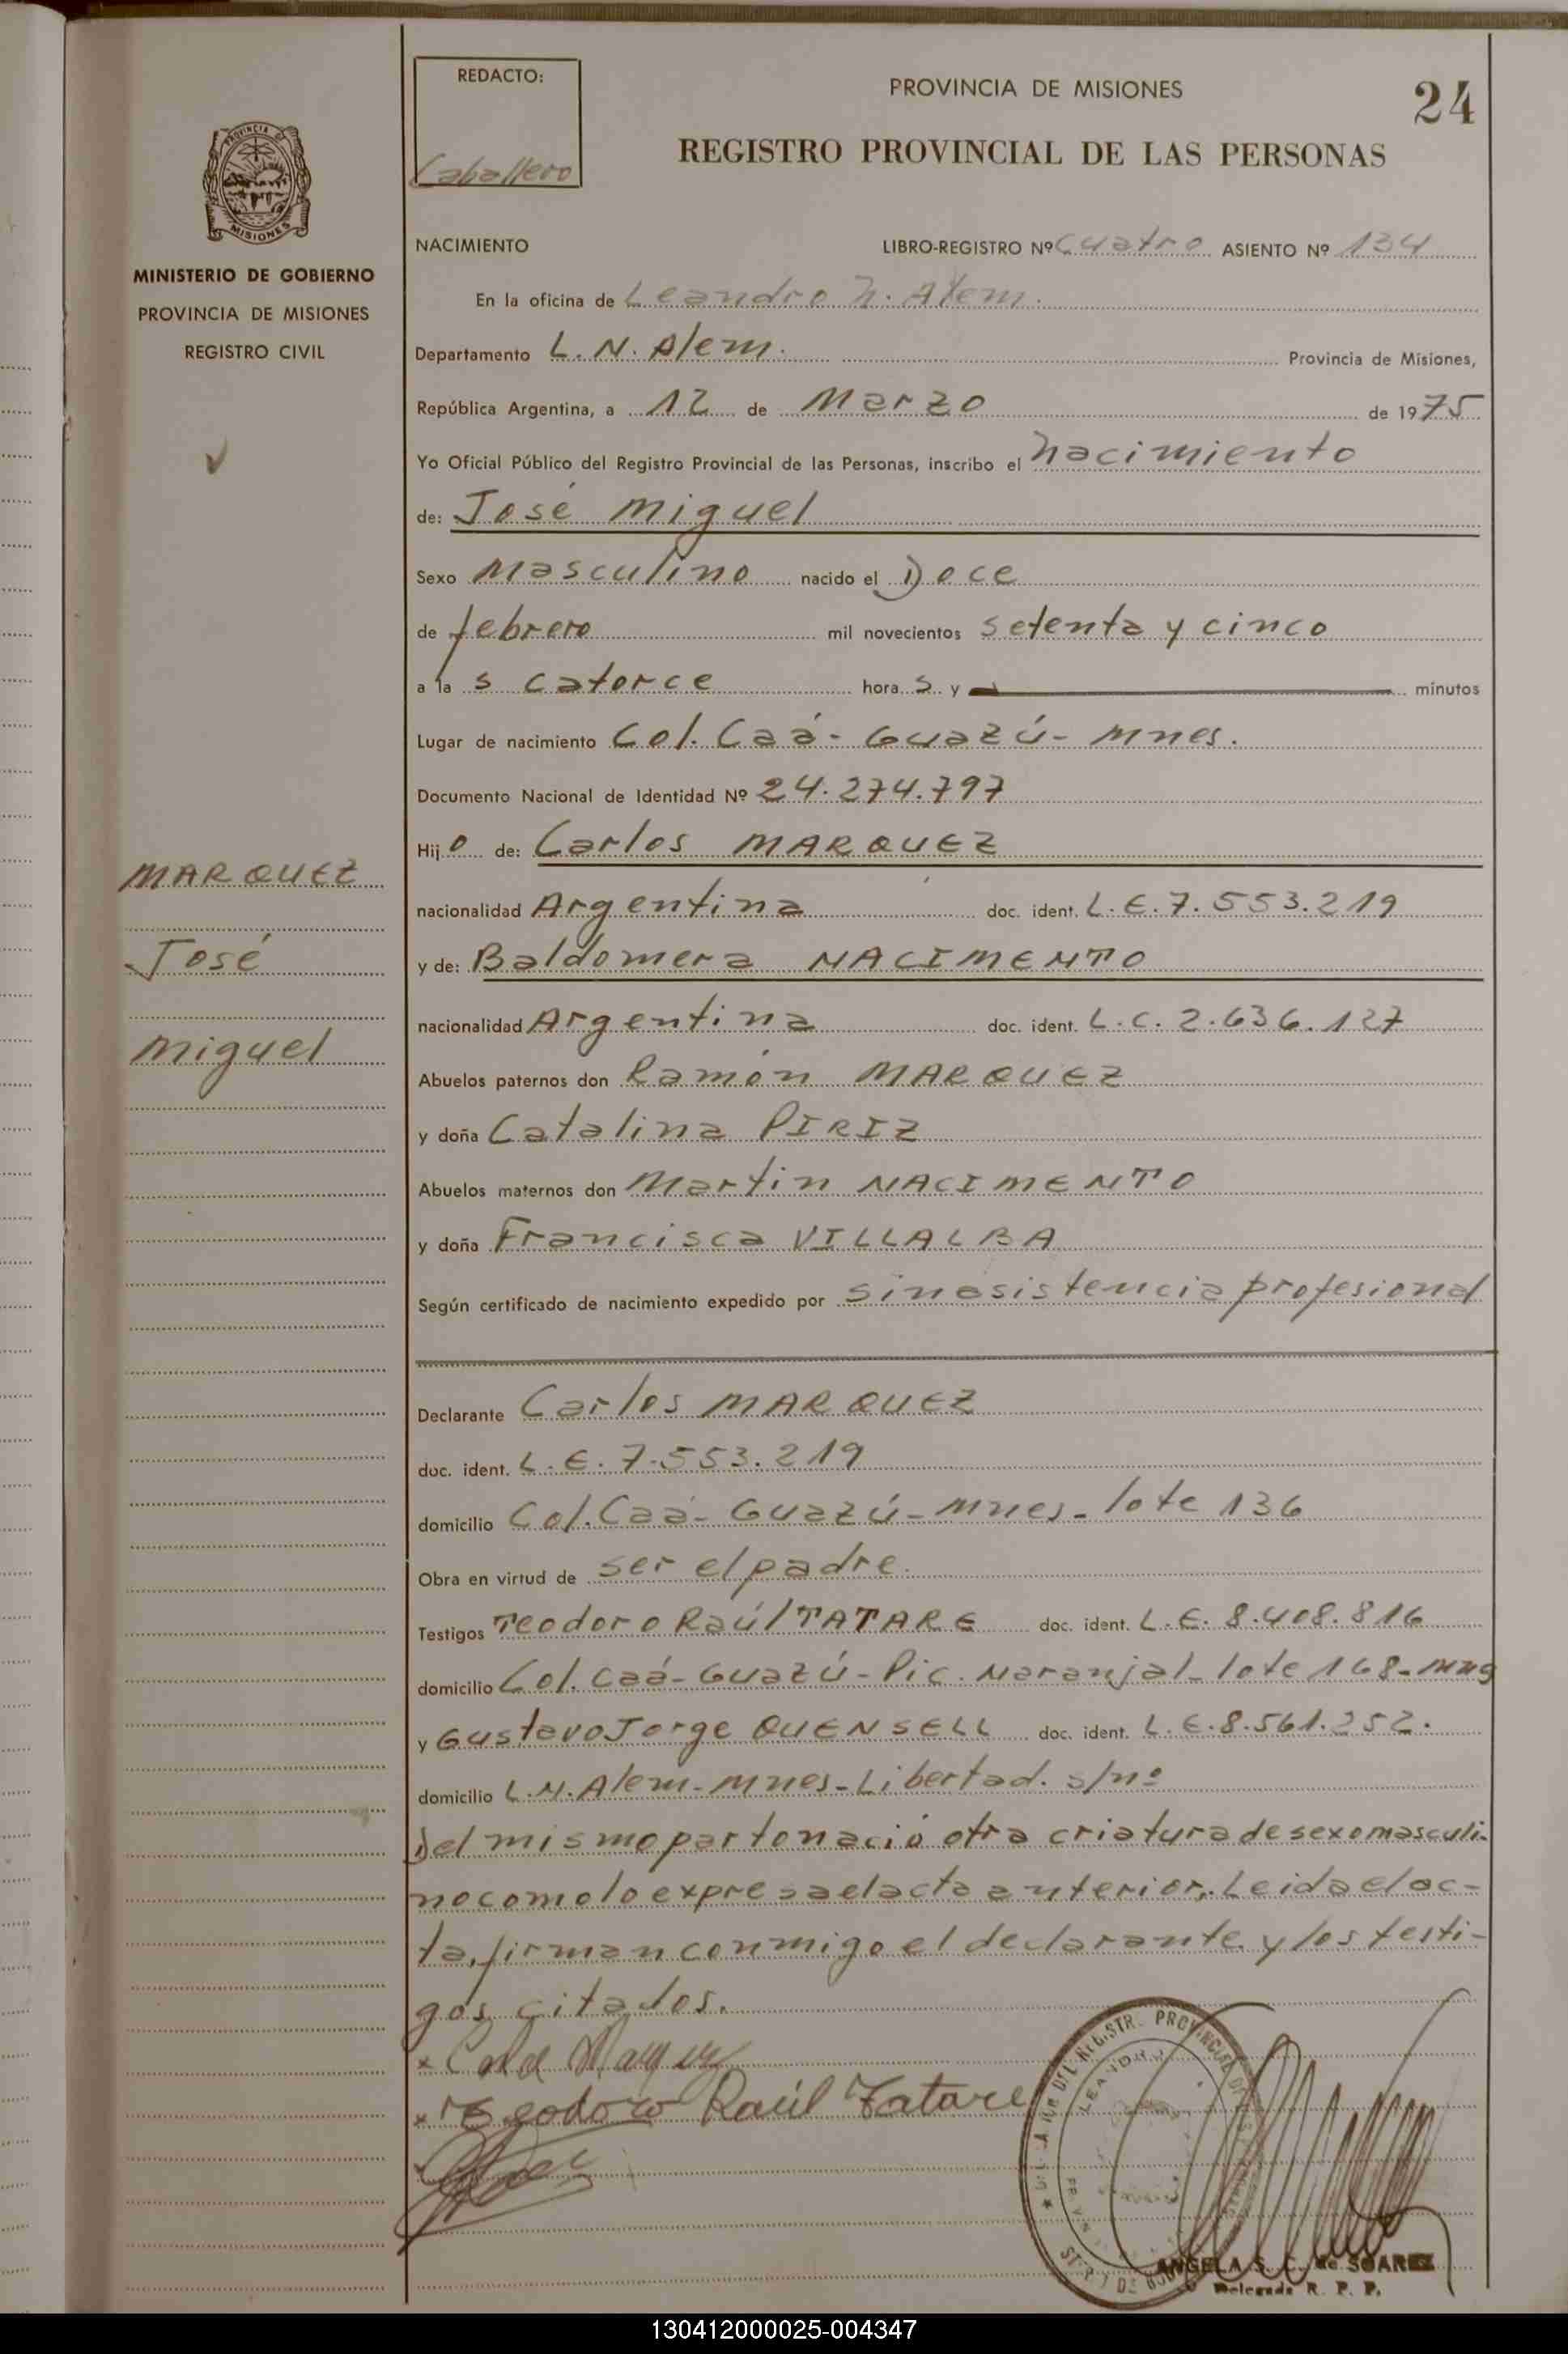 REDACTO:
Caballero
PROVINCIA DE MISIONES
24
REGISTRO PROVINCIAL DE LAS PERSONAS
PROVINCIA DE
MISIONES
MINISTERIO DE GOBIERNO
PROVINCIA DE MISIONES
REGISTRO CIVIL
NACIMIENTO LIBRO-REGISTRO Nº Cuatro ASIENTO Nº 134
En la oficina de Leandro N. Alem.
Departamento L. N. Alem. Provincia de Misiones,
República Argentina, a 12 de Marzo de 1975
Yo Oficial Público del Registro Provincial de las Personas, inscribo el nacimiento
de: José Miguel
Sexo Masculino nacido el Doce
de febrero mil novecientos setenta y cinco
a las catorce horas y minutos
Lugar de nacimiento Col. Caá-Guazú-Mnes.
Documento Nacional de Identidad Nº 24.274.797
Hijo de: Carlos MARQUEZ
MARQUEZ
José
Miguel
nacionalidad Argentina doc. ident. L.E. 7.553.219
y de: Baldomera NACIMENTO
nacionalidad Argentina doc. ident. L.C. 2.636.127
Abuelos paternos don Ramón MARQUEZ
y doña Catalina PIRIZ
Abuelos maternos don Martin NACIMENTO
y doña Francisca VILLALBA
Según certificado de nacimiento expedido por sin asistencia profesional
Declarante Carlos MARQUEZ
doc. ident. L.E. 7.553.219
domicilio Col. Caá-Guazú-Mnes-lote 136
Obra en virtud de ser el padre.
Testigos Teodoro Raúl TATARE doc. ident. L.E. 8.408.816
domicilio Col. Caá-Guazú-Pic. Naranjal-lote 168-Mns
y Gustavo Jorge QUENSELL doc. ident. L.E. 8.561.252.
domicilio L.N. Alem-Mnes-Libertad. s/nº
Del mismo parto nació otra criatura de sexo masculi-
no como lo expresa el acta anterior. Leida el ac-
ta, firman conmigo el declarante y los testi-
gos citados.
Teodoro Raúl Tatare
LEANDRO
ANGELA S. C. de SOAREZ
Delegada R. P. P.
130412000025-004347